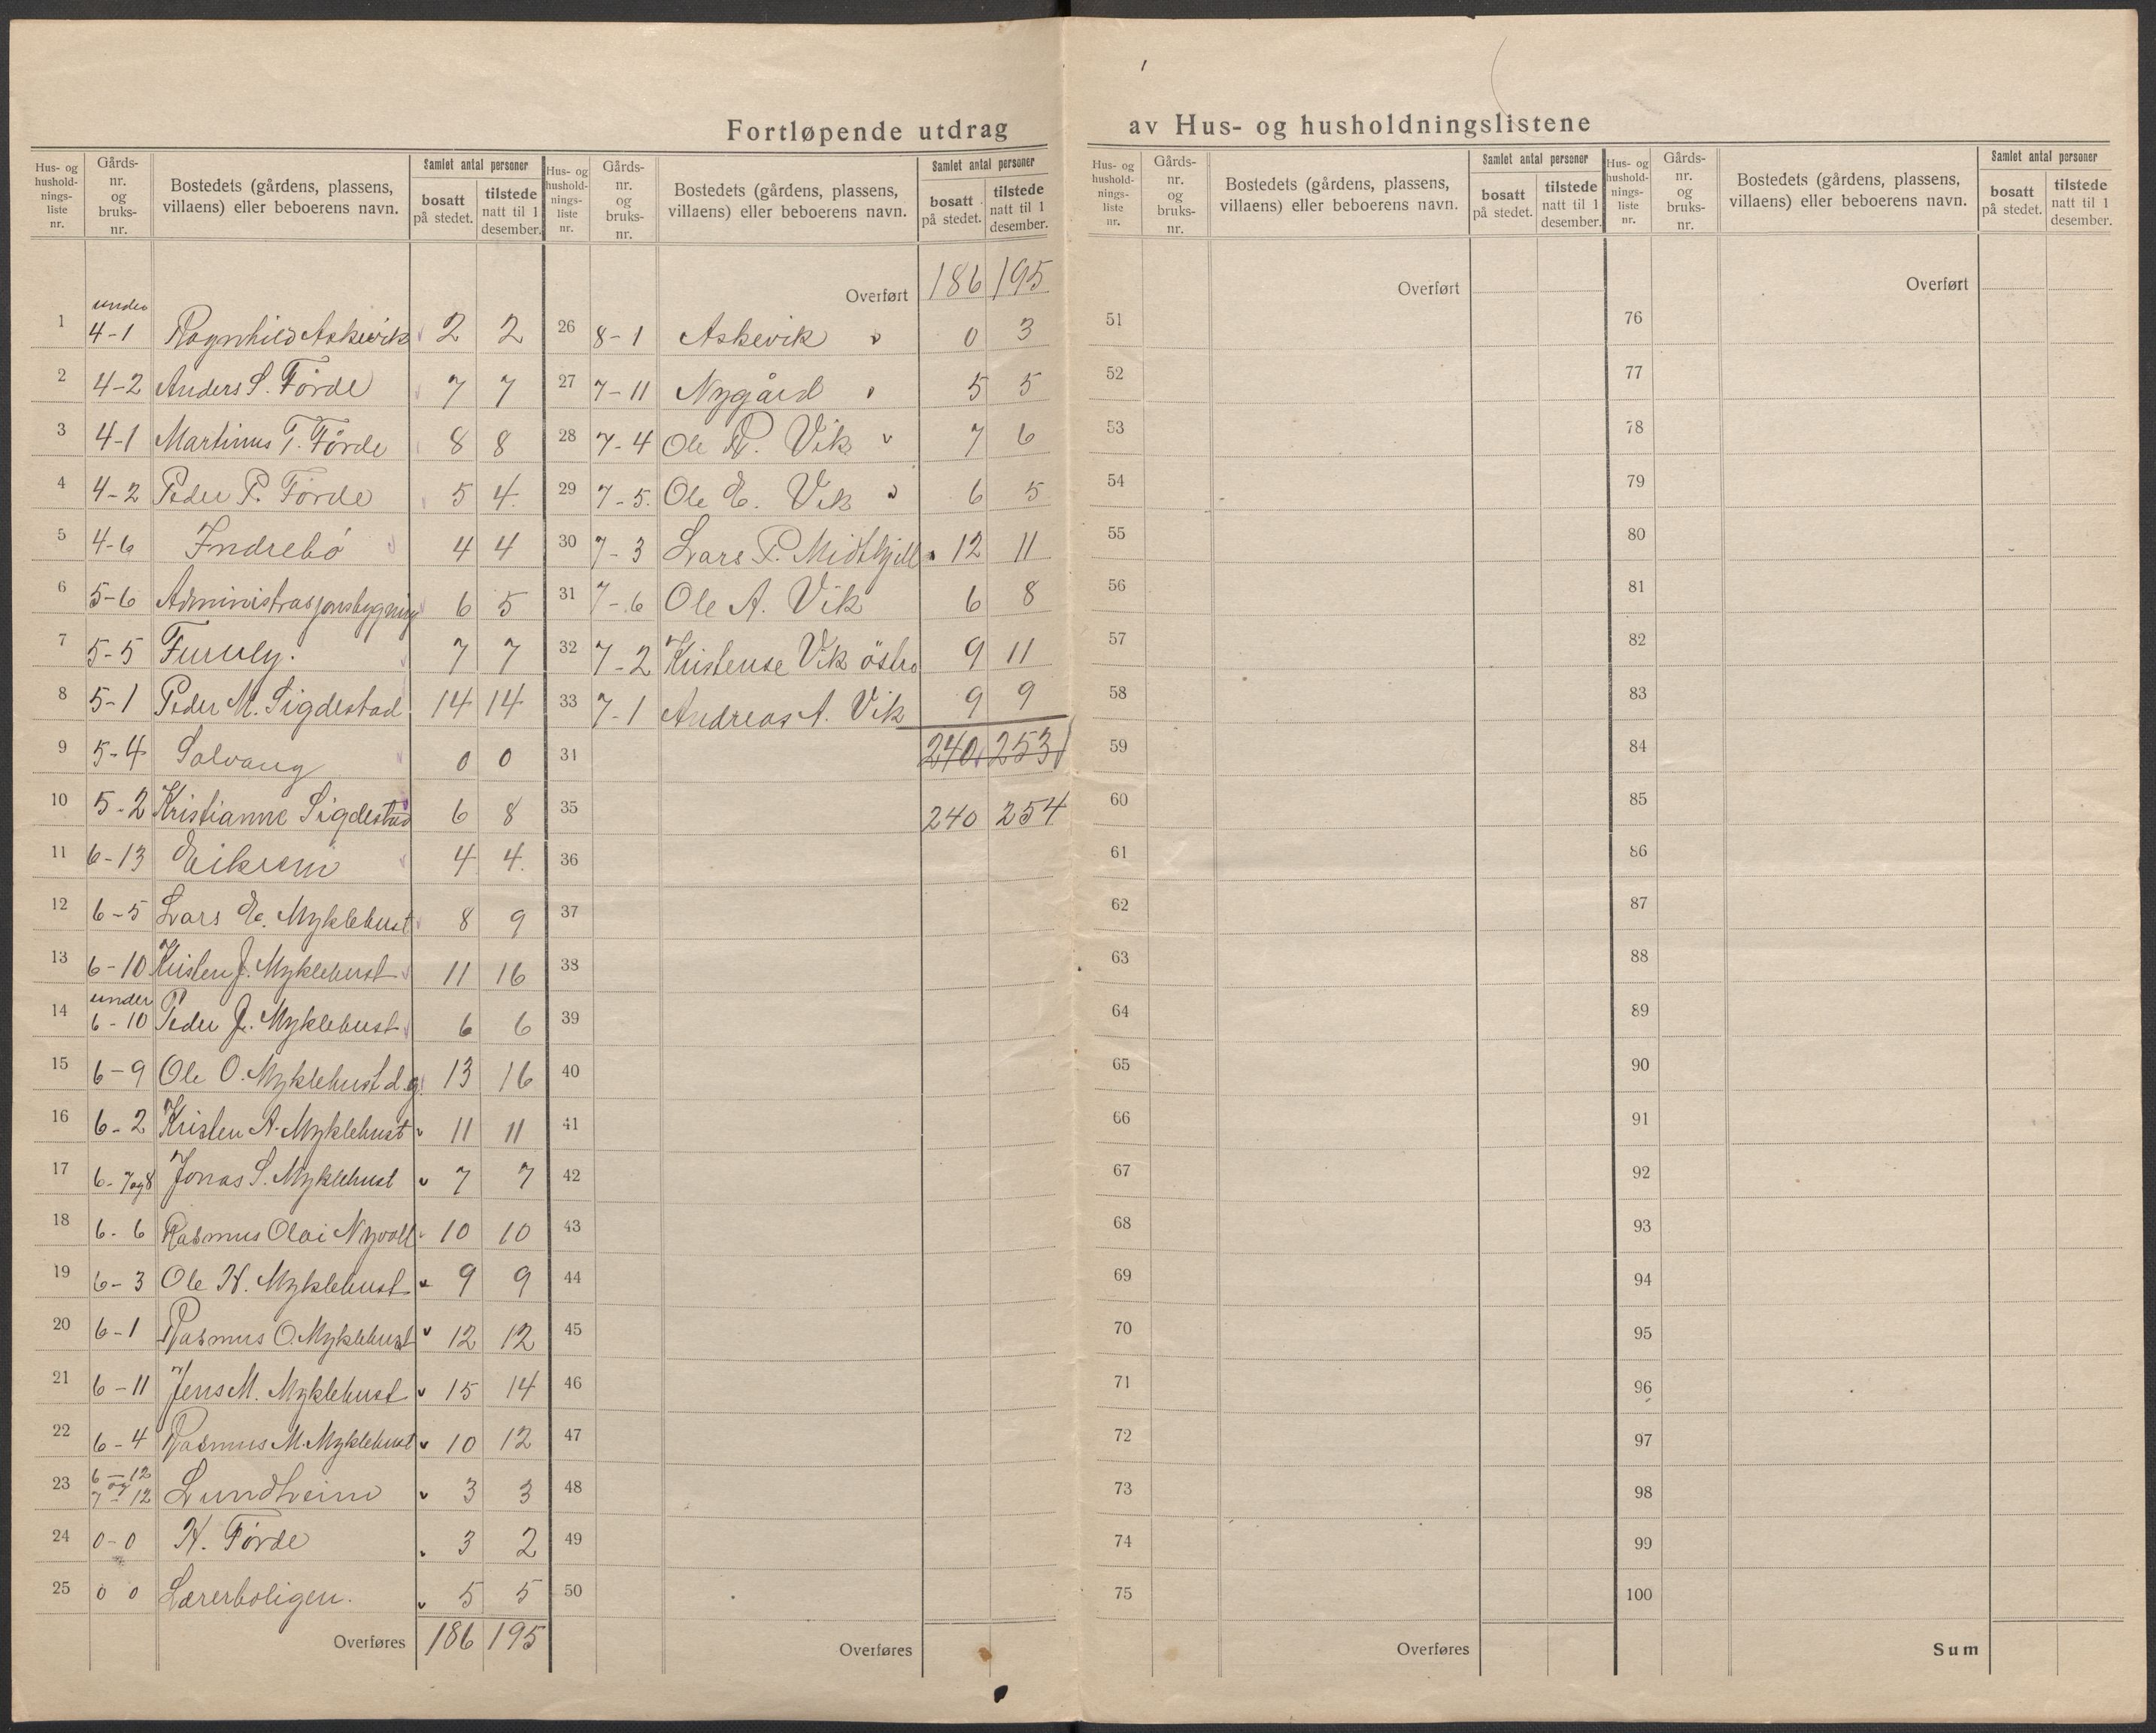 Fortløpende utdrag av Hus- og husholdningslistene
Hus- og hushold- nings- liste nr. | Gårds- nr. og bruks- nr. | Bostedets (gårdens, plassens, villaens) eller beboerens navn. | Samlet antal personer | bosatt på stedet. | tilstede natt til 1 desember.
1 under 4-1 Ragnhild Askevik 2 2
2 4-2 Anders S. Førde 7 7
3 4-1 Martinus T. Førde 8 8
4 4-2 Peder P. Førde 5 4
5 4-6 Indrebø 4 4
6 5-6 Administrasjonsbygning 6 5
7 5-5 Furuly. 7 7
8 5-1 Peder M. Sigdestad 14 14
9 5-4 Solvang 0 0
10 5-2 Kristianne Sigdestad 6 8
11 6-13 Eikrem 4 4
12 6-5 Lars E. Myklebust 8 9
13 6-10 Kristen J. Myklebust 11 16
14 under 6-10 Peder J. Myklebust 6 6
15 6-9 Ole O. Myklebust d.g. 13 16
16 6-2 Kristen A. Myklebust 11 11
17 6-7og8 Jonas S. Myklebust 7 7
18 6-6 Rasmus Olai Nyvoll 10 10
19 6-3 Ole H. Myklebust 9 9
20 6-1 Rasmus O. Myklebust 12 12
21 6-11 Jens M. Myklebust 15 14
22 6-4 Rasmus M. Myklebust 10 12
23 6-12 og 7-12 Lundheim 3 3
24 0-0 H. Førde 3 2
25 0 0 Lærerboligen. 5 5
Overføres 186 195
Hus- og hushold- nings- liste nr. | Gårds- nr. og bruks- nr. | Bostedets (gårdens, plassens, villaens) eller beboerens navn. | Samlet antal personer | bosatt på stedet. | tilstede natt til 1 desember.
Overført 186 195
26 8-1 Askevik 0 3
27 7-11 Nygård 5 5
28 7-4 Ole R. Vik 7 6
29 7-5. Ole E. Vik 6 5
30 7-3 Lars P. Midthjell 12 11
31 7-6 Ole A. Vik 6 8
32 7-2 Kristense Vik östre 9 11
33 7-1 Andreas A. Vik 9 9
31 240 253
35 240 254
36
37
38
39
40
41
42
43
44
45
46
47
48
49
50
Overføres
Hus- og hushold- nings- liste nr. | Gårds- nr. og bruks- nr. | Bostedets (gårdens, plassens, villaens) eller beboerens navn. | Samlet antal personer | bosatt på stedet. | tilstede natt til 1 desember.
Overført
51
52
53
54
55
56
57
58
59
60
61
62
63
64
65
66
67
68
69
70
71
72
73
74
75
Overføres
Hus- og hushold- nings- liste nr. | Gårds- nr. og bruks- nr. | Bostedets (gårdens, plassens, villaens) eller beboerens navn. | Samlet antal personer | bosatt på stedet. | tilstede natt til 1 desember.
Overført
76
77
78
79
80
81
82
83
84
85
86
87
88
89
90
91
92
93
94
95
96
97
98
99
100
Sum